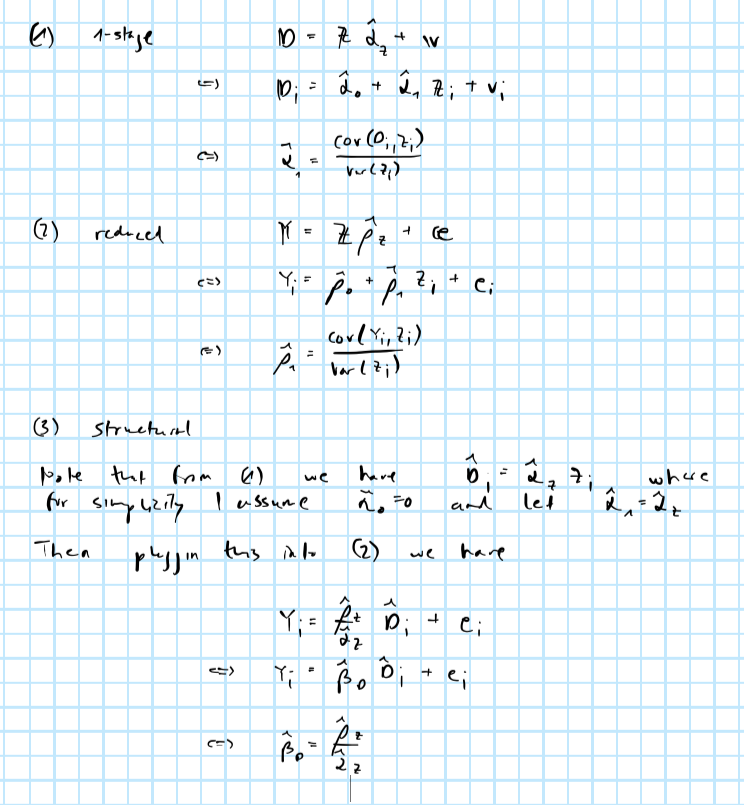 (1) 1-stage 𝔻 = ℤ α̂_z + 𝕧
<=> D_i = α̂_0 + α̂_1 Z_i + v_i
<=> α̂_1 = cov(D_i, Z_i) / Var(Z_i)
(2) reduced 𝕐 = ℤ ρ̂_z + 𝕖
<=> Y_i = ρ̂_0 + ρ̂_1 Z_i + e_i
<=> ρ̂_1 = cov(Y_i, Z_i) / Var(Z_i)
(3) structural
Note that from (1) we have D̂_i = α̂_z Z_i where
for simplicity I assume α̂_0 = 0 and let α̂_1 = α̂_z
Then pluggin this into (2) we have
Y_i = ρ̂_z / α̂_z D̂_i + e_i
<=> Y_i = β̂_D D̂_i + e_i
<=> β̂_D = ρ̂_z / α̂_z